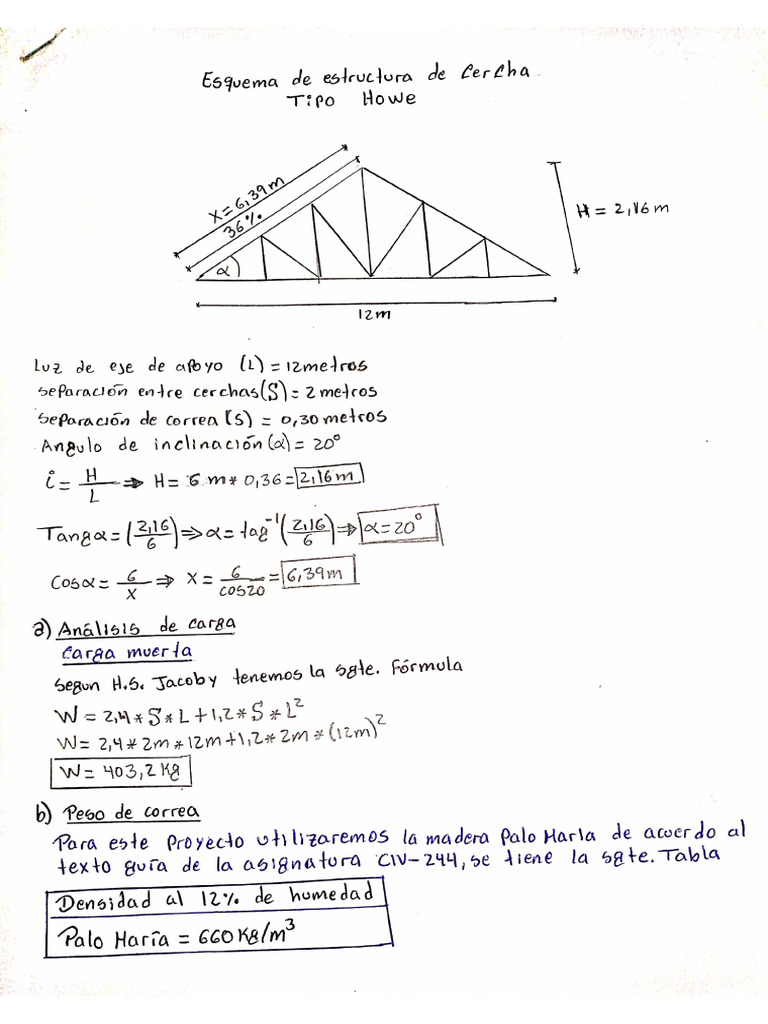 Esquema de estructura de Cercha
Tipo Howe
X=6,39m
36%
α
H = 2,16m
12m
Luz de eje de apoyo (L) = 12metros
Separación entre cerchas(S) = 2 metros
Separación de correa (S) = 0,30 metros
Angulo de inclinación (α) = 20°
i = H/L ⇒ H = 6 m * 0,36 = 2,16m
Tang α = (2,16/6) ⇒ α = tag⁻¹(2,16/6) ⇒ α = 20°
Cos α = 6/X ⇒ X = 6/cos20 = 6,39m
a) Análisis de carga
Carga muerta
Segun H.S. Jacoby tenemos la sgte. Fórmula
W = 2,4 * S * L + 1,2 * S * L²
W = 2,4 * 2m * 12m + 1,2 * 2m * (12m)²
W = 403,2 Kg
b) Peso de correa
Para este Proyecto utilizaremos la madera Palo Maria de acuerdo al
texto guía de la asignatura CIV-244, se tiene la sgte. Tabla
Densidad al 12% de humedad
Palo María = 660 Kg/m³